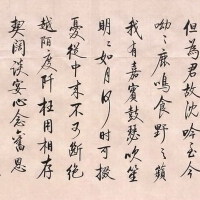 但為君故沈吟至今
呦〻鹿鳴食野之蘋
我有嘉賓鼓瑟吹笙
明〻如月何時可掇
憂從中來不可斷絕
越陌度阡枉用相存
契闊談宴心念舊恩